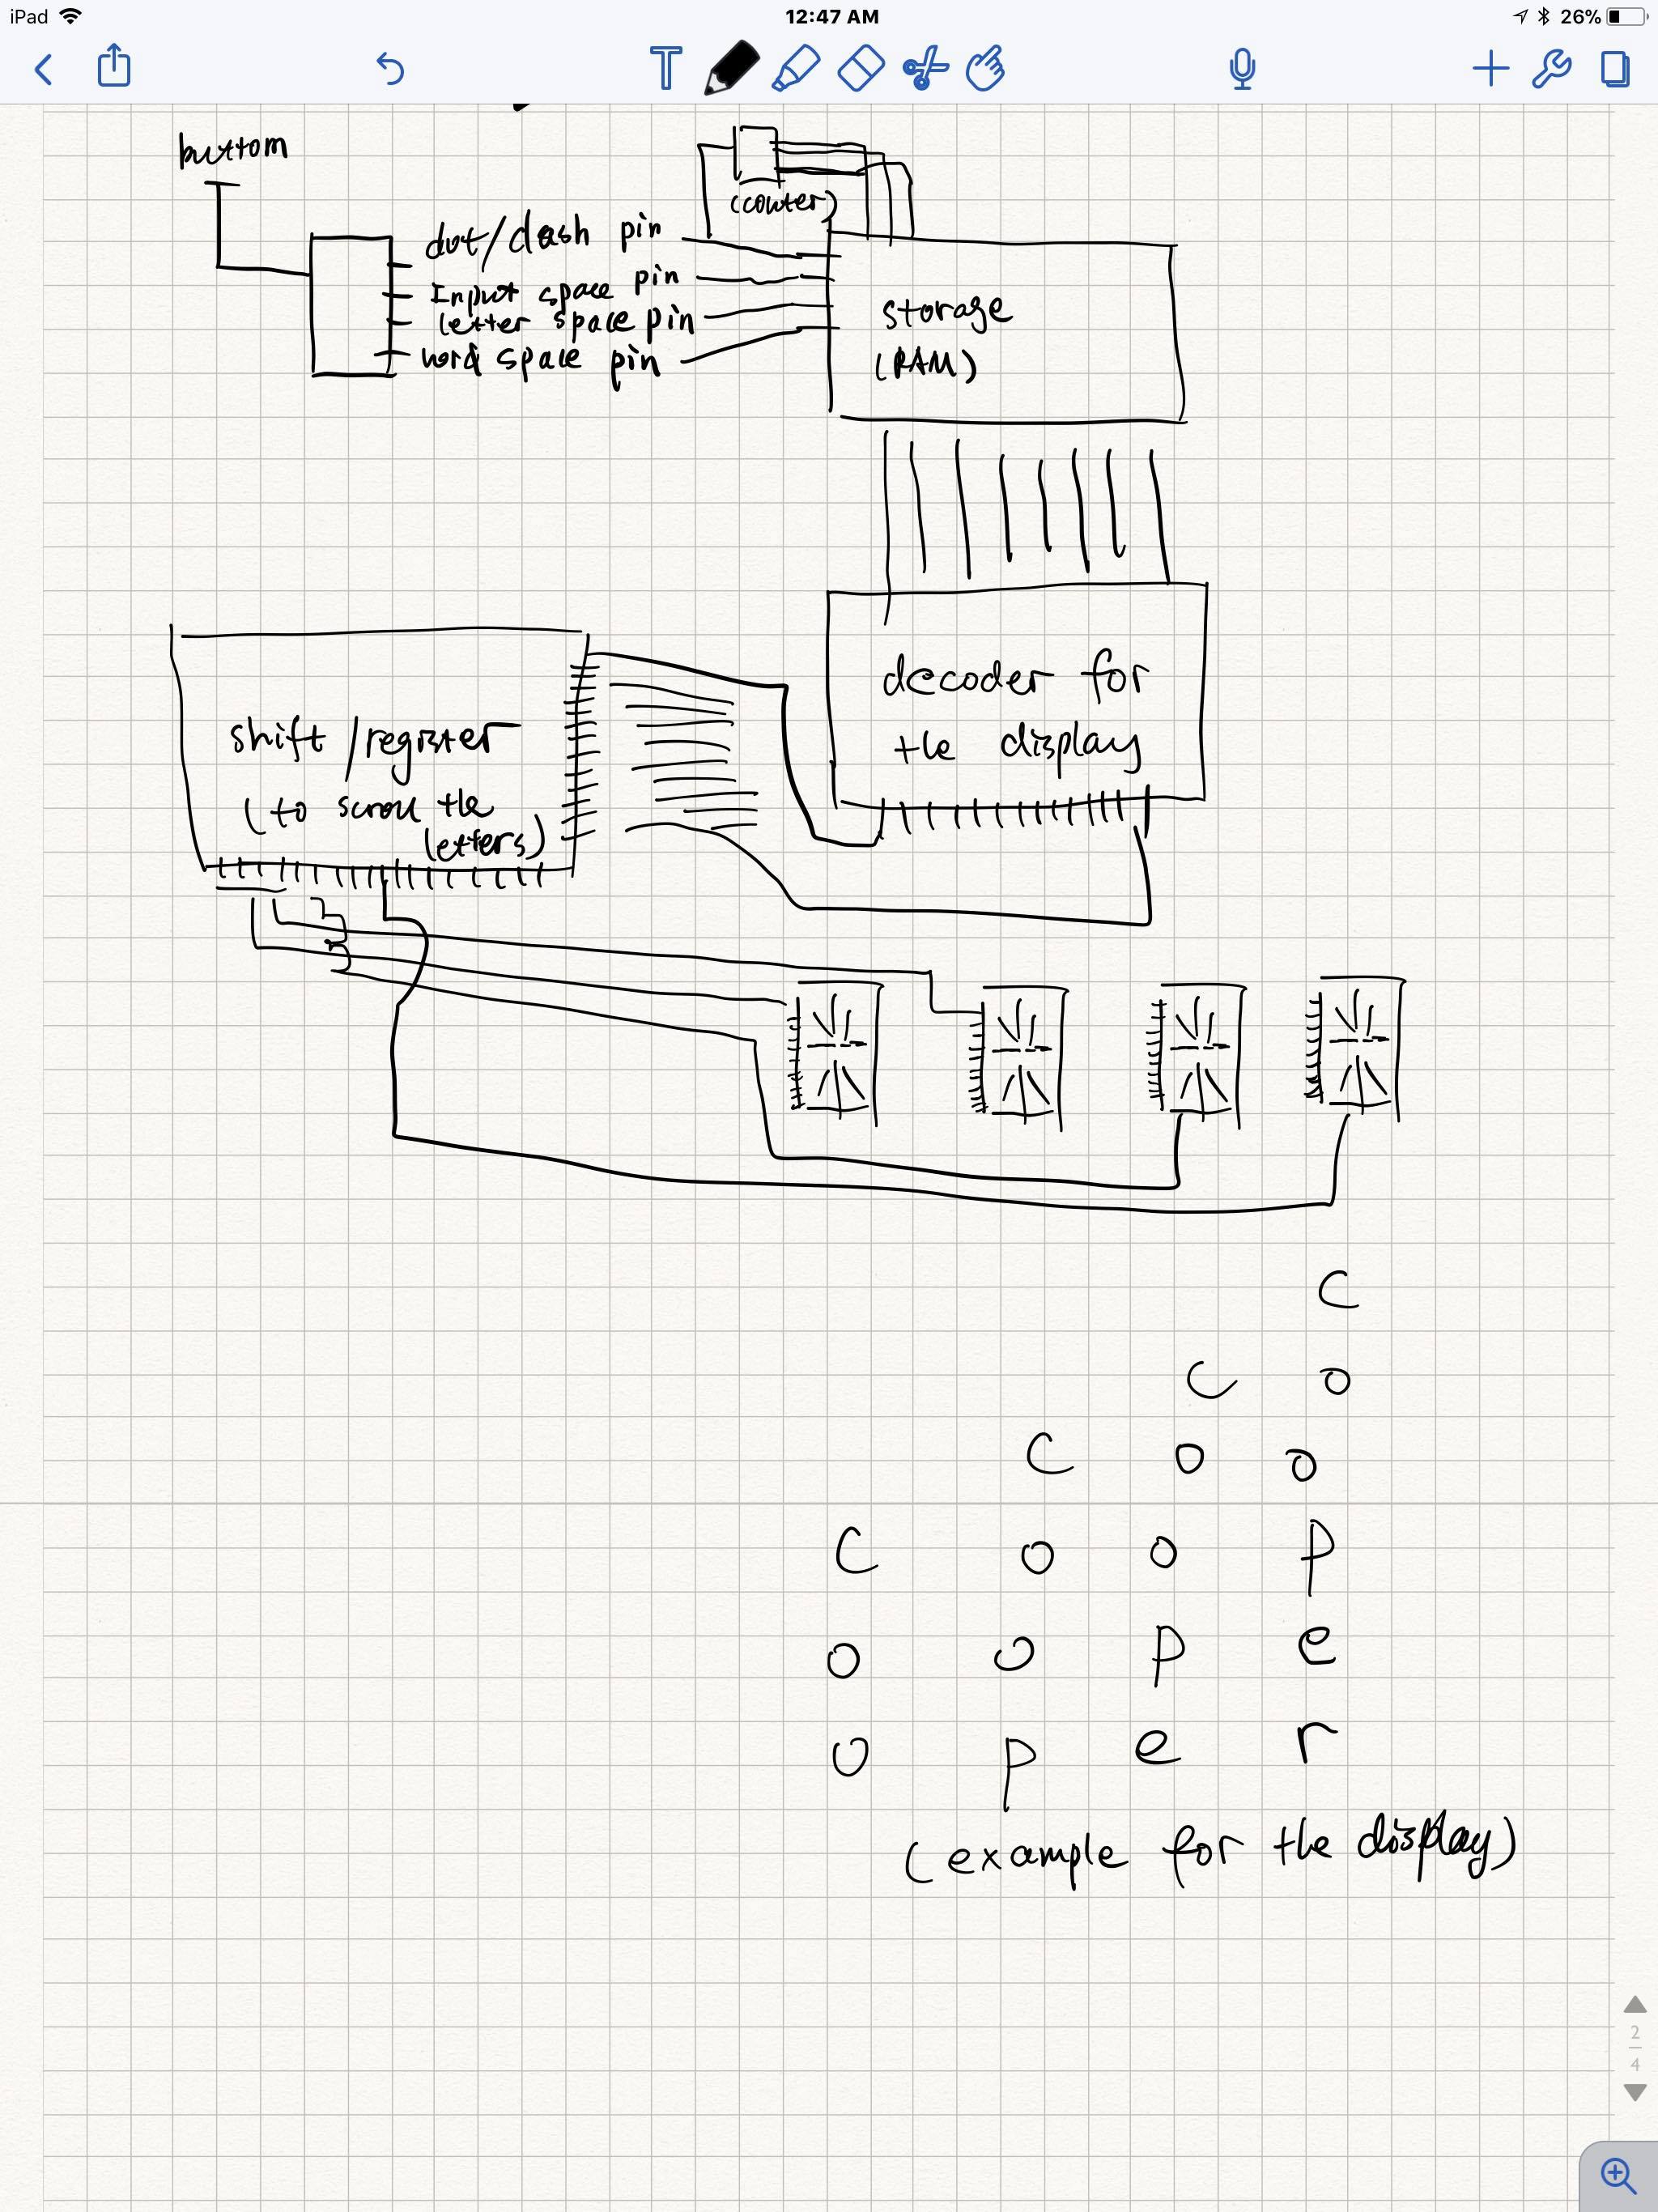 iPad
12:47 AM
26%
T
buttom
(couter)
dot/dash pin
Input space pin
letter space pin
word space pin
storage
(RAM)
decoder for
the display
shift/register
(to scroll the
letters)
C
C o
C o o
C o o p
o o p e
o p e r
(example for the display)
2
4